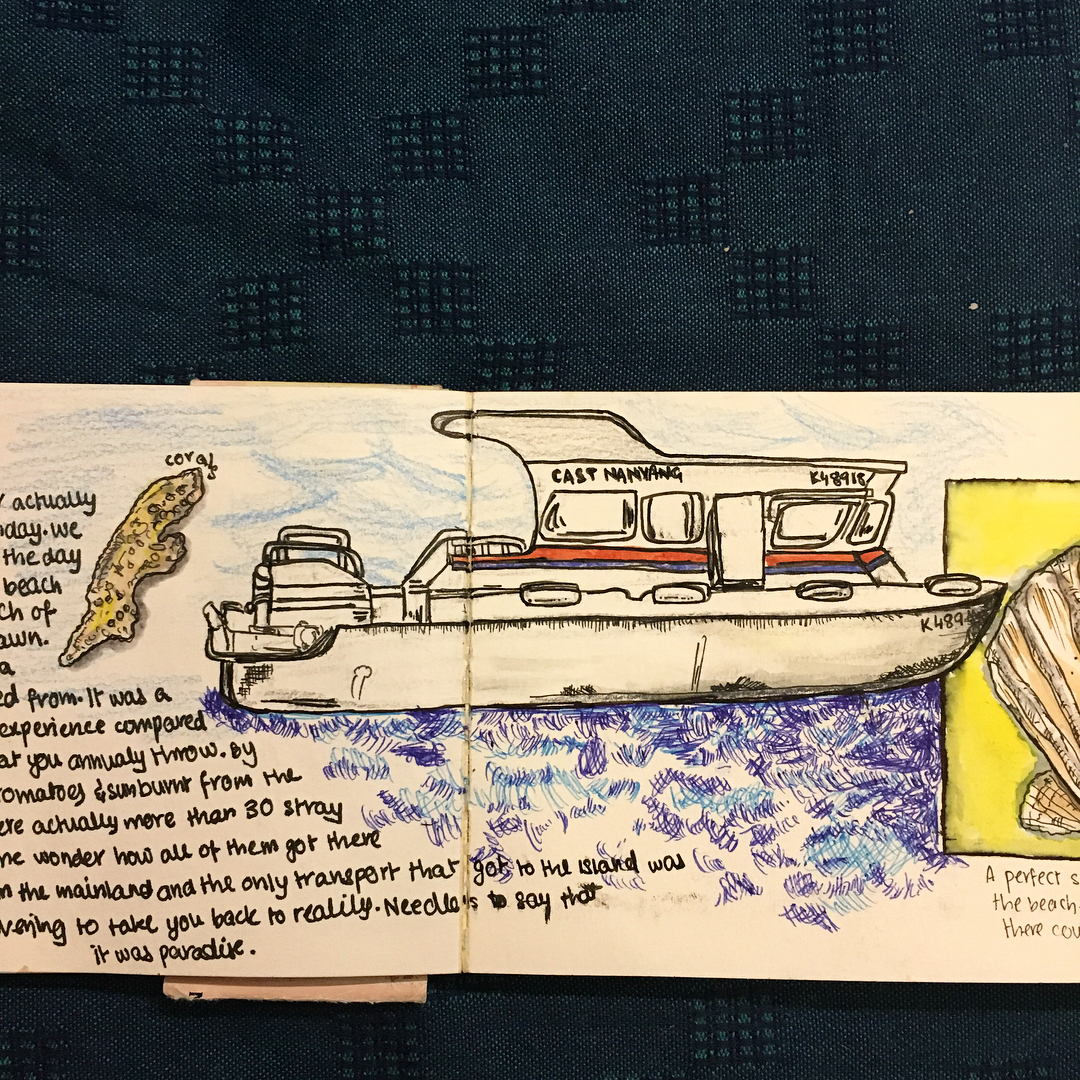 coral
actually
day. we
the day
beach
ch of
awn.
a
ed from. It was a
experience compared
at you annualy throw. By
romatoes & sunburnt from the
ere actually more than 30 stray
ne wonder how all of them got there
n the mainland and the only transport that got to the island was
to take you back to reality. Needle's to say that
it was paradise.
CAST NANYANG
K48918
K489
A perfect s
the beach.
there cou